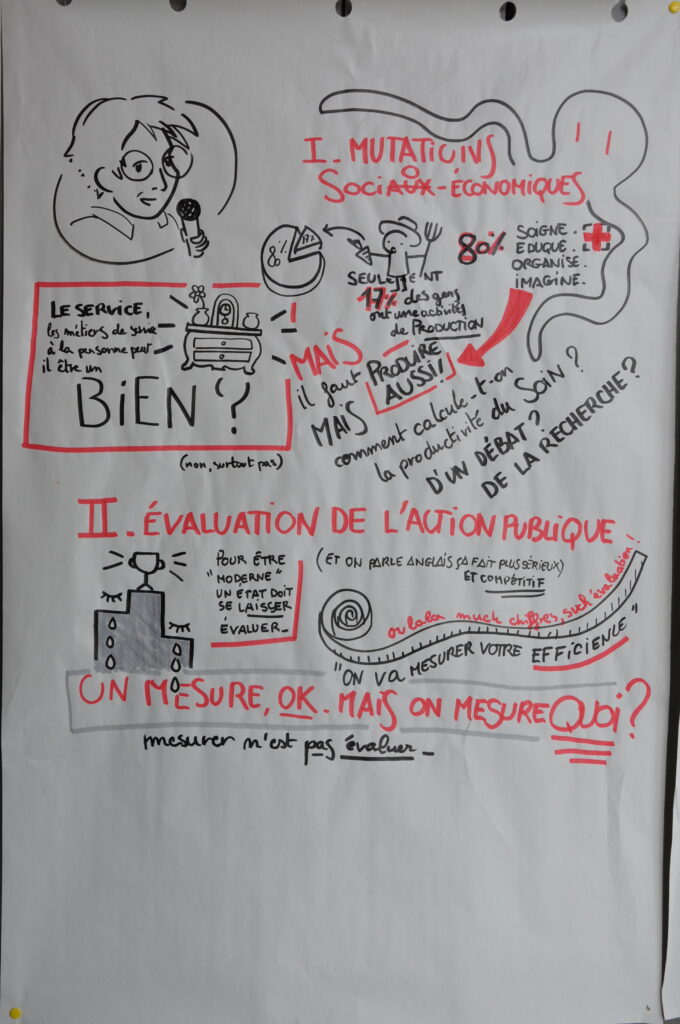 I. MUTATIONS
SOCIO-ÉCONOMIQUES
8%
17%
80%
SOIGNE.
EDUQUE.
ORGANISE.
IMAGINE.
SEULEMENT
17% des gens
ont une activités
de PRODUCTION
LE SERVICE,
les métiers de service
à la personne peut
il être un
BIEN ?
(non, surtout pas)
MAIS
il faut PRODUIRE
AUSSI!
MAIS
comment calcule-t-on
la productivité du Soin ?
D'UN DÉBAT ?
DE LA RECHERCHE ?
II. ÉVALUATION DE L'ACTION PUBLIQUE
POUR ÊTRE
"MODERNE"
UN ÉTAT DOIT
SE LAISSER
ÉVALUER_
(ET ON PARLE ANGLAIS ÇA FAIT PLUS SÉRIEUX)
ET COMPÉTITIF
ou lala much chiffres, such évaluation!
"ON VA MESURER VOTRE EFFICIENCE"
ON MESURE, OK. MAIS ON MESURE QUOI ?
mesurer n'est pas évaluer_